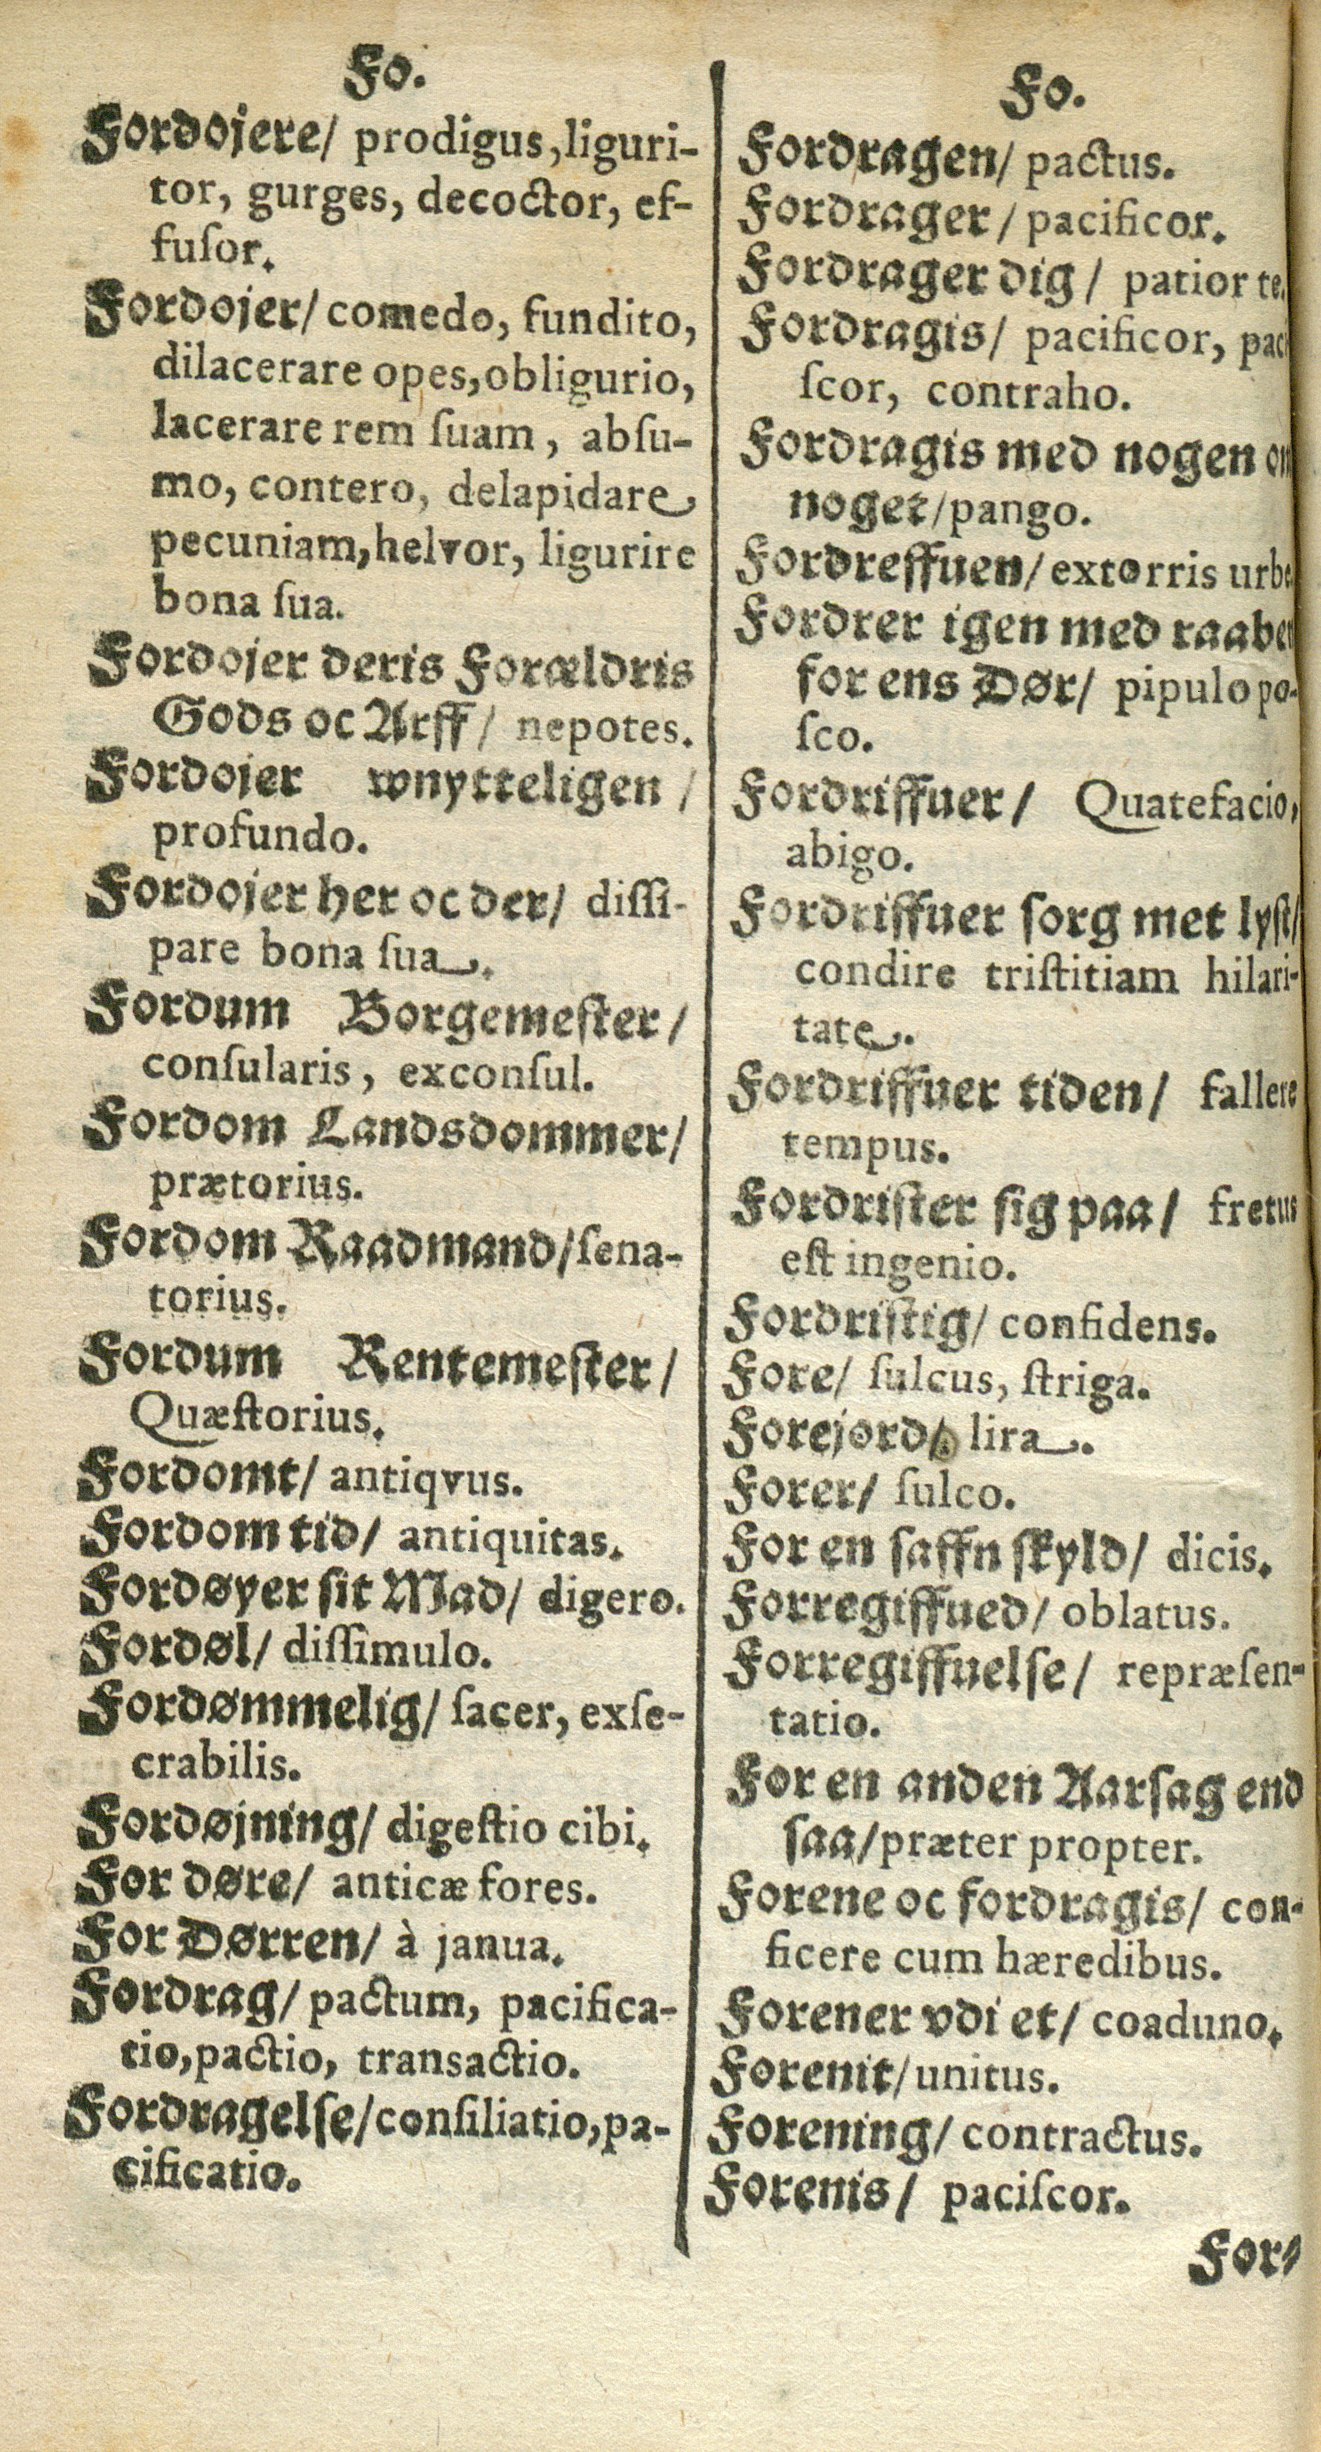 Fo.
Fordojere/ prodigus, liguri-
tor, gurges, decoctor, ef-
fuſor.
Fordojer/ comedo, fundito,
dilacerare opes, obligurio,
lacerare rem ſuam, abſu-
mo, contero, delapidare
pecuniam, helvor, ligurire
bona ſua.
Fordojer deris Forældris
Gods oc Arff/ nepotes.
Fordojer wnytteligen/
profundo.
Fordojer her oc der/ diſſi-
pare bona ſua.
Fordum Borgemeſter/
conſularis, exconſul.
Fordom Landsdommer/
prætorius.
Fordom Raadmand/ ſena-
torius.
Fordum Rentemeſter/
Quæſtorius.
Fordomt/ antiqvus.
Fordom tid/ antiquitas.
Fordøyer ſit Mad/ digero.
Fordøl/ diſſimulo.
Fordømmelig/ ſacer, exſe-
crabilis.
Fordøjning/ digeſtio cibi.
For døre/ anticæ fores.
For Dørren/ à janua.
Fordrag/ pactum, pacifica-
tio, pactio, transactio.
Fordragelſe/ conſiliatio, pa-
cificatio.
Fo.
Fordragen/ pactus.
Fordrager/ pacificor.
Fordrager dig/ patior te.
Fordragis/ pacificor, paci
ſcor, contraho.
Fordragis med nogen om
noget/ pango.
Fordreffuen/ extorris urbe
Fordrer igen med raaben
for ens Dør/ pipulo po-
ſco.
Fordriffuer/ Quatefacio,
abigo.
Fordriffuer ſorg met lyſt/
condire triſtitiam hilari-
tate.
Fordriffuer tiden/ fallere
tempus.
Fordriſter ſig paa/ fretus
eſt ingenio.
Fordriſtig/ confidens.
Fore/ ſulcus, ſtriga.
Forejord/ lira.
Forer/ ſulco.
For en ſaffn ſkyld/ dicis.
Forregiffued/ oblatus.
Forregiffuelſe/ repræſen-
tatio.
For en anden Aarſag end
ſaa/ præter propter.
Forene oc fordragis/ con-
ficere cum hæredibus.
Forener vdi et/ coaduno.
Forenit/ unitus.
Forening/ contractus.
Forenis/ paciſcor.
For-